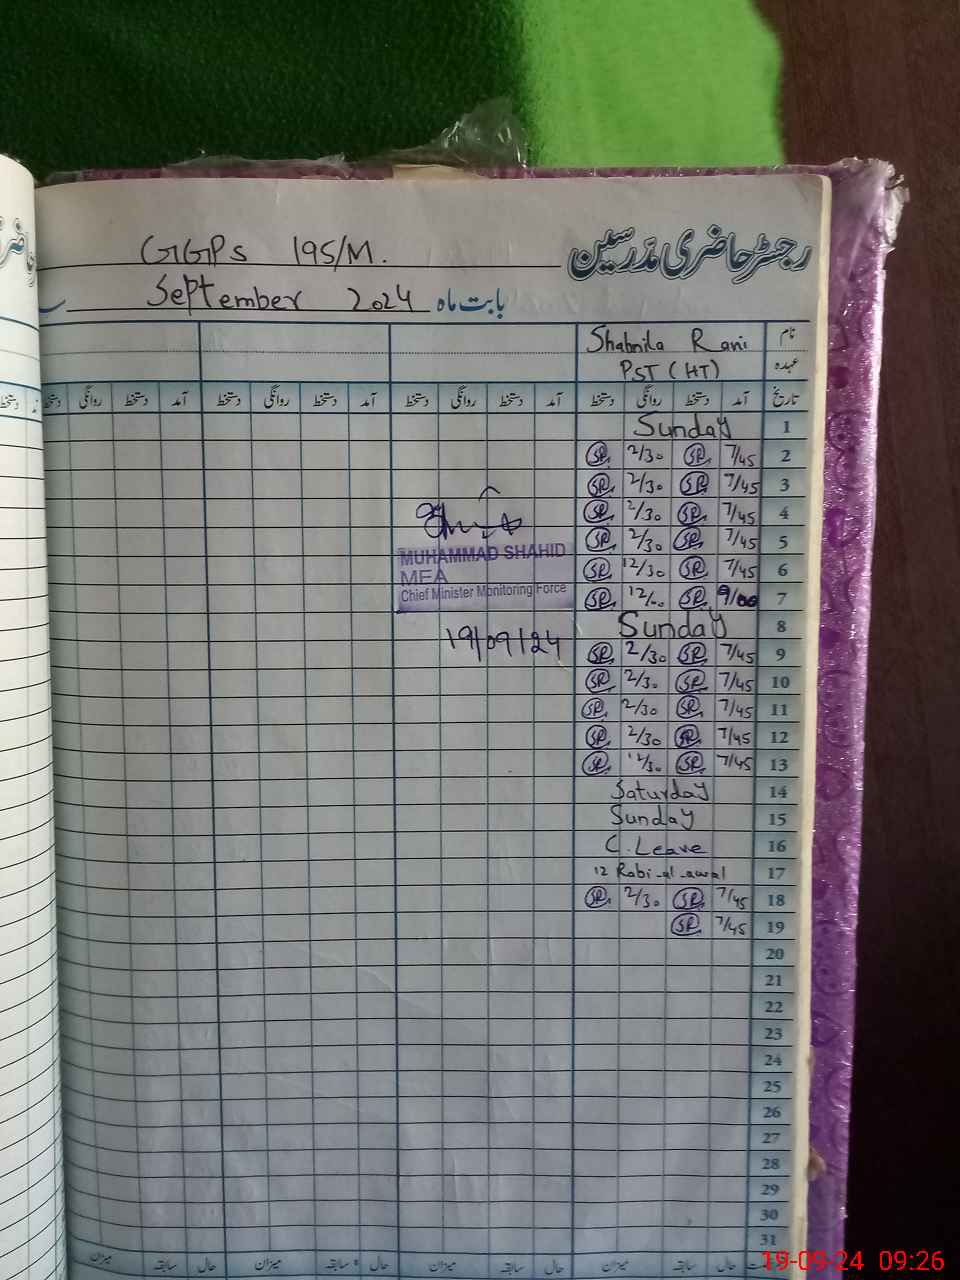 GGPS 195/M. رجسٹر حاضری مدرسین
September 2024 بابت ماہ
Shabnila Rani نام
PST (HT) عہدہ
دستخط روانگی دستخط آمد دستخط روانگی دستخط آمد دستخط روانگی دستخط آمد دستخط روانگی دستخط آمد تاریخ
Sunday 1
SR. 2/30 SR. 7/45 2
SR. 2/30 SR. 7/45 3
SR. 2/30 SR. 7/45 4
SR. 2/30 SR. 7/45 5
SR. 12/30 SR. 7/45 6
SR. 12/00 SR. 9/00 7
MUHAMMAD SHAHID
MEA
Chief Minister Monitoring Force
19/09/24
Sunday 8
SR. 2/30 SR. 7/45 9
SR. 2/30 SR. 7/45 10
SR. 2/30 SR. 7/45 11
SR. 2/30 SR. 7/45 12
SR. 12/30 SR. 7/45 13
Saturday 14
Sunday 15
C. Leave 16
12 Rabi-al-awal 17
SR. 2/30 SR. 7/45 18
SR. 7/45 19
20
21
22
23
24
25
26
27
28
29
30
31
میزان سابقہ حال میزان سابقہ حال میزان سابقہ حال میزان سابقہ حال
19-09-24 09:26